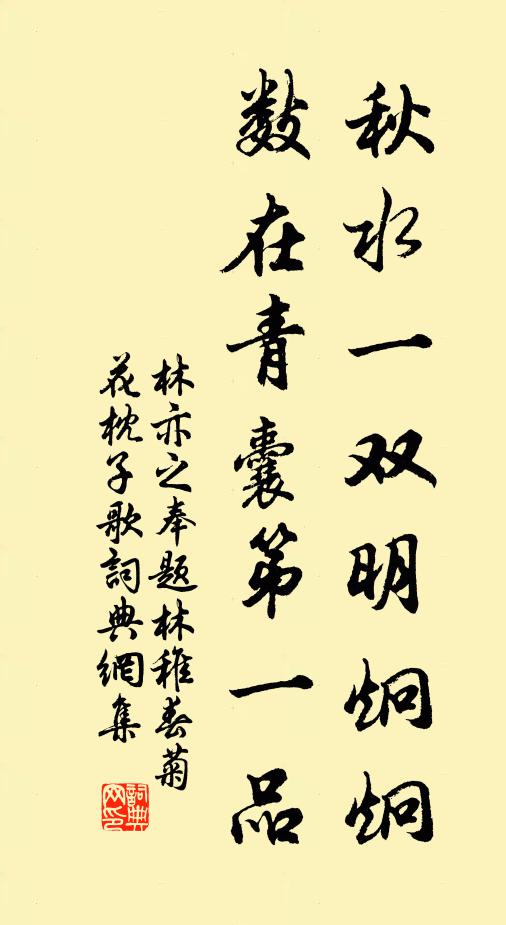 秋水一双明炯炯
数在青囊第一品
林亦之奉题林稚春菊
花枕子歌詞典網集
詞典網印